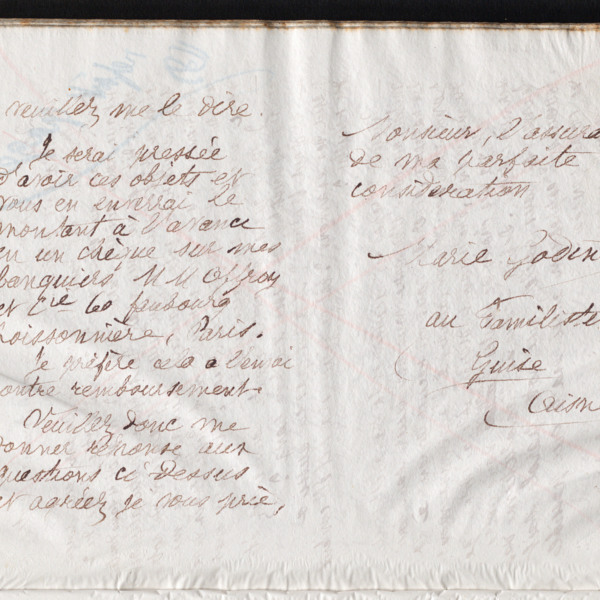 veuillez me le dire.
Je serai pressée
d'avoir ces objets et
vous en enverrai le
montant à l'avance
en un chèque sur mes
banquiers MM Offroy
et Cie 60 faubourg
Poissonnière, Paris.
Je préfère cela a l'envoi
contre remboursement.
Veuillez donc me
donner réponse aux
questions ci dessus
et agréez je vous prie,
Monsieur, l'assura
de ma parfaite
considération
Marie Godin
au Familistè
Guise
Aisn